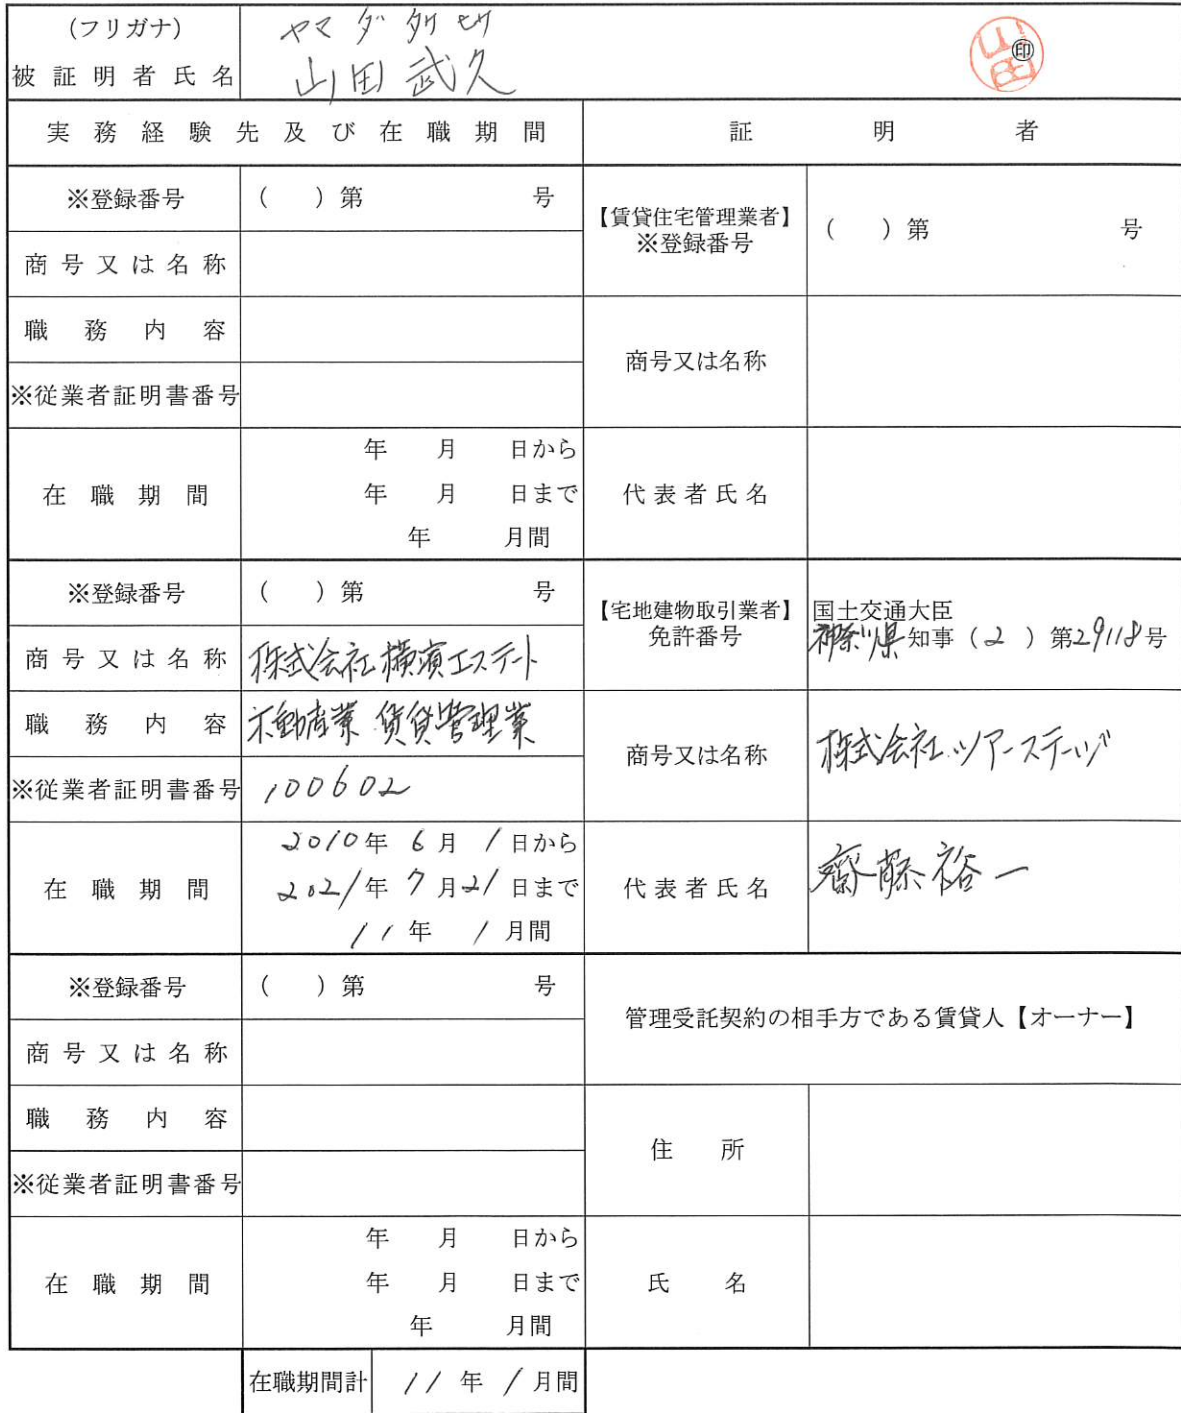 (フリガナ) ヤマダ タケヒサ
被証明者氏名 山田武久 山田 ㊞
実務経験先及び在職期間 証明者
※登録番号 ( )第 号
【賃貸住宅管理業者】
※登録番号 ( )第 号
商号又は名称
職務内容
※従業者証明書番号
商号又は名称
在職期間
年 月 日から
年 月 日まで
年 月間
代表者氏名
※登録番号 ( )第 号
【宅地建物取引業者】
免許番号
国土交通大臣
神奈川県知事(2)第29118号
商号又は名称 株式会社横濱エステート
職務内容 不動産業 賃貸管理業
※従業者証明書番号 100602
商号又は名称 株式会社ツアーステージ
在職期間
2010年6月1日から
2021年7月21日まで
11年1月間
代表者氏名 齋藤裕一
※登録番号 ( )第 号
管理受託契約の相手方である賃貸人【オーナー】
商号又は名称
職務内容
※従業者証明書番号
住所
在職期間
年 月 日から
年 月 日まで
年 月間
氏名
在職期間計 11年1月間